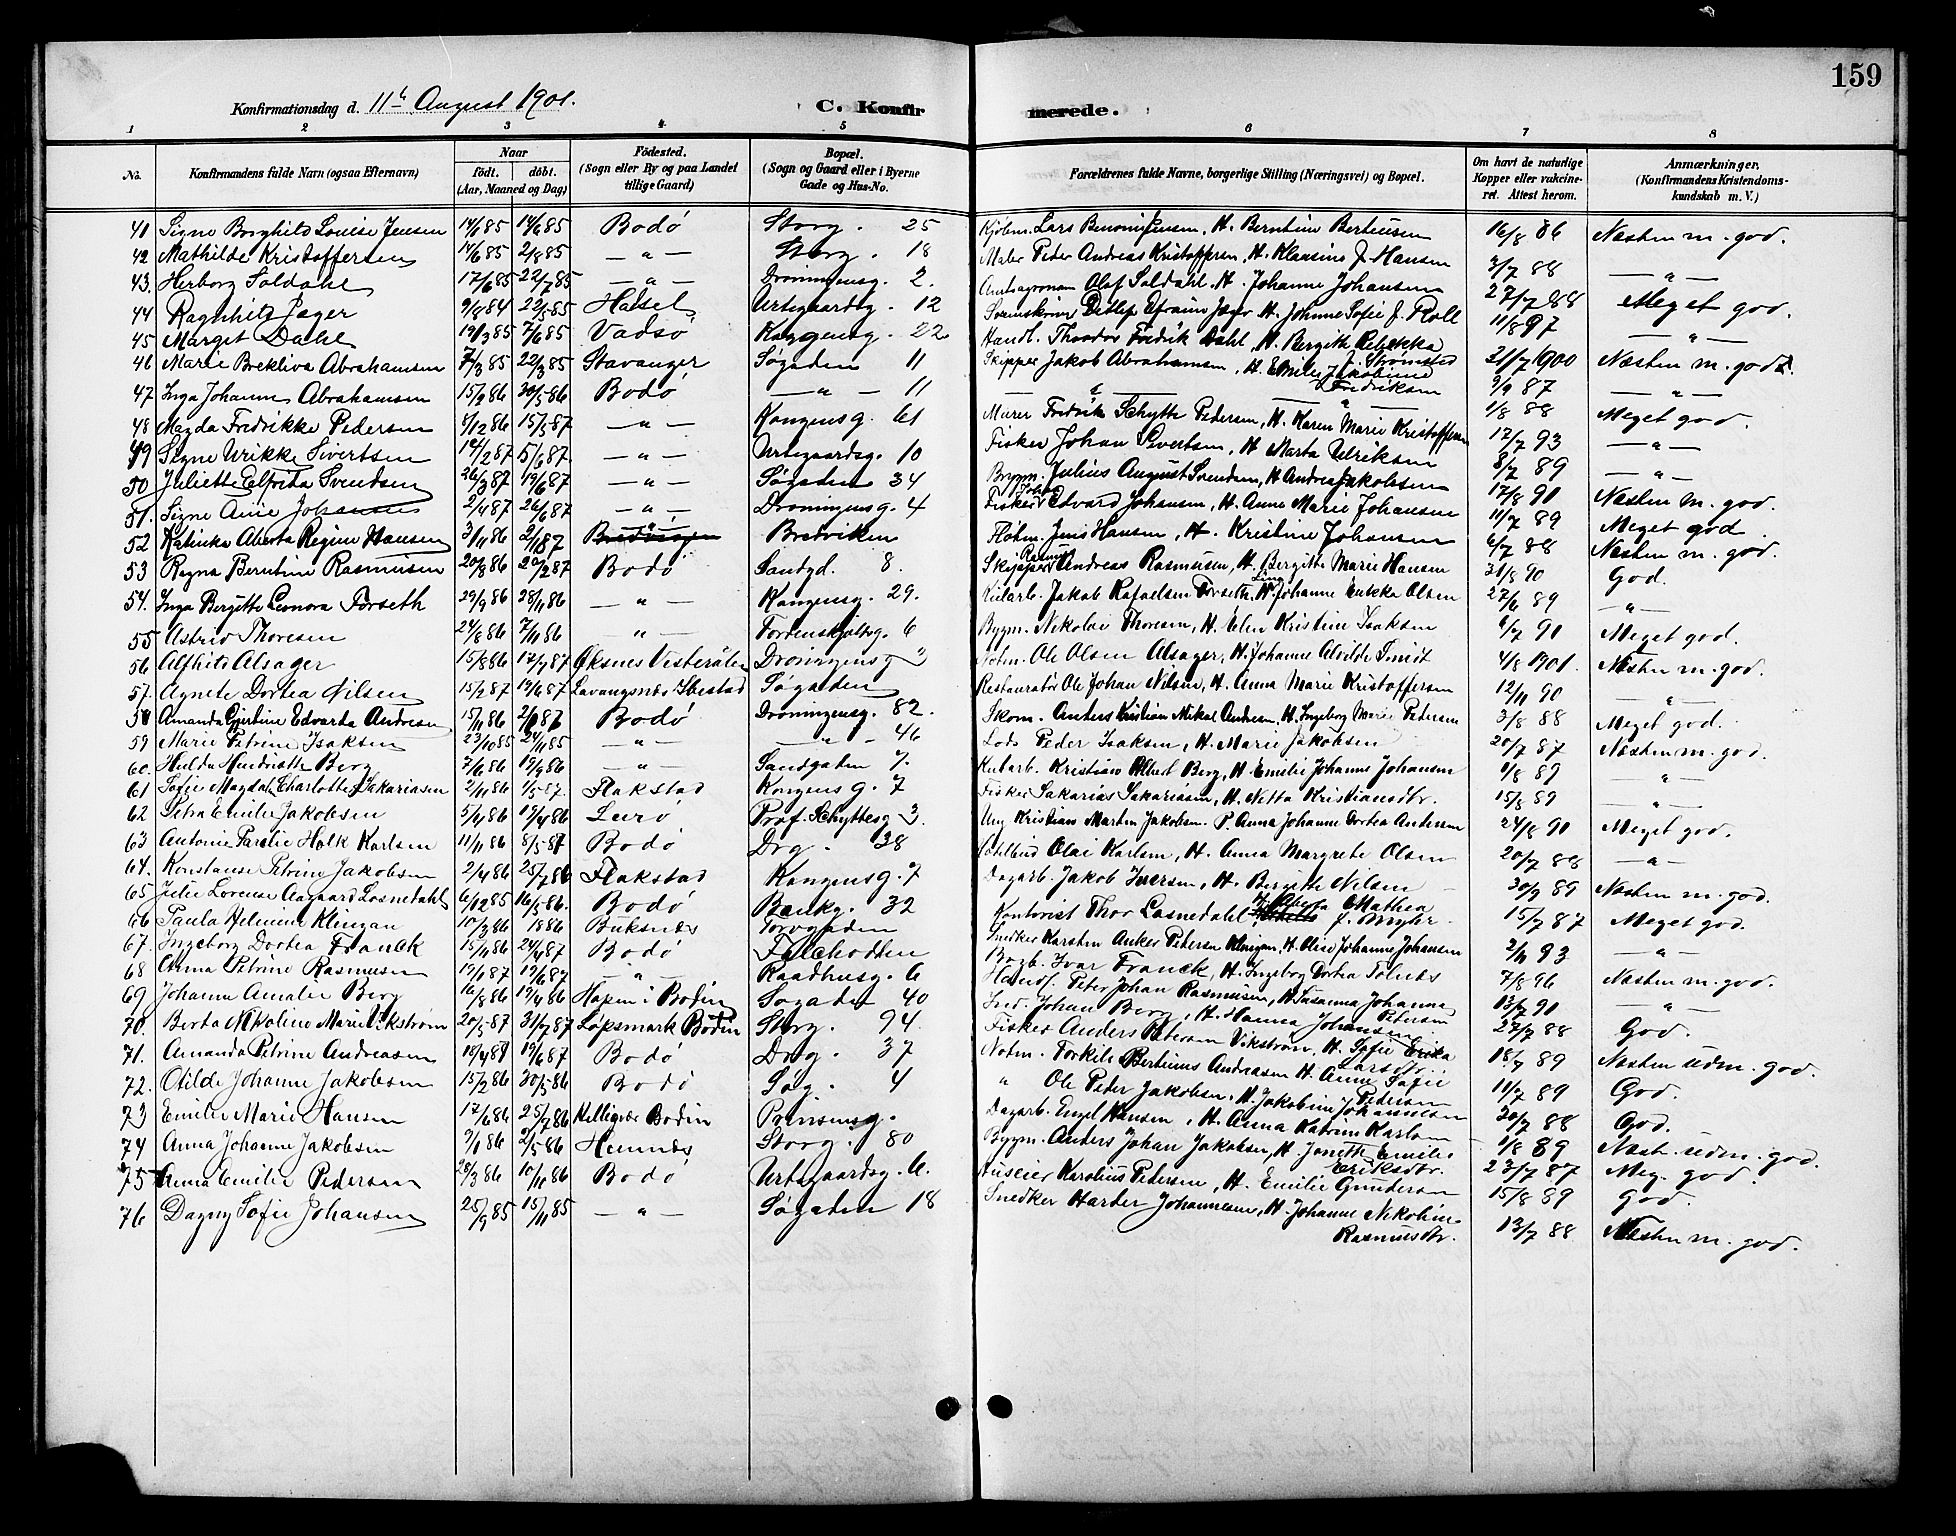 159
Konfirmationsdag d. 11te August 1901. C. Konfirmerede.
1 2 3 4 5 6 7 8
No. Konfirmandens fulde Navn (ogsaa Efternavn) Naar födt. döbt. (Aar, Maaned og Dag) Födested. (Sogn eller By og paa Landet tillige Gaard) Bopæl. (Sogn og Gaard eller i Byerne Gade og Hus-No. Forældrenes fulde Navne, borgerlige Stilling (Næringsvei) og Bopæl. Om havt de naturlige Kopper eller vaccineret. Attest herom. Anmærkninger. (Konfirmandens Kristendomskundskab m. V.)
41 Signe Borghild Louise Jensen 14/6 85 14/6 85 Bodö Storg. 25 Kjöbm. Lars Benoni Jensen, H. Berntine Berteusen 16/8 86 Næsten m. god.
42 Mathilde Kristoffersen 14/6 85 2/8 85 — " — Storg. 18 Maler Peder Andreas Kristoffersen, H. Klausine J. Hansen 3/7 88 — " —
43. Herborg Soldahl 17/6 85 22/7 85 — " — Dronningensg. 2. Amtsagronom Olaf Soldahl. H. Johanne Johansen 27/7 88 Meget god.
44 Ragnhild Jager 9/8 84 22/5 85 Hassel Urtegaardsg. 12 Sorenskriver Detlef Efraim Jager H. Johanne Sofie f. Roll 11/8 97 — " —
45 Marget Dahl 19/3 85 7/6 85 Vadsö Kongensg. 22 Handl. Theodor Fredrik Dahl, H. Bergith Rebekka f. Strømsted 21/7 1900 Næsten m. god.
46 Marie Brektiva Abrahamsen 7/3 85 22/3 85 Stavanger Søgaden 11 Skipper Jakob Abrahamsen, H. Emilie Jakobine Fredriksen 9/9 87 — " —
47 Inga Johanne Abrahamsen 15/9 86 30/5 86 Bodö — " — 11 — " — 1/8 88 Meget god.
48 Magda Fredrikke Pedersen 8/12 86 15/5 87 — " — Kongensg. 61 Murer Fredrik Schytte Pedersen, H. Karen Marie Kristoffersen 12/7 93 — " —
49 Signe Urikke Sivertsen 14/2 87 5/6 87 — " — Urtegaardsg. 10 Fisker Johan Sivertsen, H. Marta Ulriksen 8/7 89 — " —
50 Juliette Elfrida Svendsen 26/3 87 19/6 87 — " — Søgaden 34 Brygm. Julius August Svendsen, H. Andrea Jakobsen 17/8 91 Næsten m. god.
51. Signe Anie Johansen 2/4 87 26/6 87 — " — Dronningensg. 4 Fisker Johan Edvard Johansen, H. Anne Marie Johansen 11/7 89 Meget god
52 Katinka Alberta Regine Hansen 3/11 86 2/1 87 Bredviken Flötm. Jens Hansen, H. Kristine Johansen 6/7 88 Næsten m. god.
53 Ragna Berntine Rasmusen 20/8 86 20/2 87 Bodö Sandgd. 8. Skipper Rasmus Andreas Rasmusen, H. Bergitte Marie Hansen 31/8 90 God.
54. Inga Bergitte Leonora Forseth 29/9 86 28/11 86 — " — Kongensg. 29. Kularb. Jakob Rafaelsen Forseth, H. Johanne Lukka Olsen 27/6 89 — " —
55 Astrid Thoresen 24/8 86 7/11 86 " — Tordenskjoldsg. 6 Bygm. Nikolai Thoresen, H. Elen Kristine Isaksen 6/7 90 Meget god.
56 Alfhild Alsager 15/8 86 17/7 87 Øksnes Vesterålen Dronningensg 3 Notm. Ole Olsen Alsager, H. Johanne Alvilde Smidt 4/8 1901. Næsten m. god.
57. Agnete Dortea Nilsen 15/2 87 19/6 87 Lavangsnes Ibestad Søgaden Restauratör Ole Johan Nilsen, H. Anna Marie Kristoffersen 12/11 90 — " —
58 Amanda Gjertine Edvarda Andresen 15/11 86 2/1 87 Bodö Dronningensg. 82. Skom. Anders Kristian Mikal Andresen, H. Ingeborg Marie Pedersen 3/8 88 Meget god.
59 Marie Petrine Isaksen 23/10 85 24/11 85 — " — — " — 46 Lods Peder Isaksen, H. Marie Jakobsen 20/7 87 Næsten m. god.
60. Hulda Hendriette Berg 7/6 86 19/9 86 — " — Sandgaden 7. Kularb. Kristian Albert Berg, H. Emilie Johanne Johansen 1/8 89 — " —
61 Sofie Magdal. Charlotte Sakariasen 2/11 86 1/5 87. Flakstad Kongensg. 7 Fisker Sakarias Sakariasen, H. Netta Kristiansdtr. 15/8 89 — " —
62 Petra Emilie Jakobsen 5/4 86 13/4 86 Lurö Prof. Schyttesg 3. Ung Kristian Martin Jakobsen. P. Anna Johanne Dortea Andersen 24/8 90 Meget god.
63 Antonie Parelie Holk Karlsen 11/11 86 8/5 87 Bodö Drg. 38 Olai Karlsen, H. Anna Margrete Olsen 20/7 88 — " —
64. Konstanse Petrine Jakobsen 2/4 86 25/7 86 Flakstad Kongensg. 7 Dagarb. Jakob Iversen, H. Bergitte Nilsen 30/9 89 Næsten m. god.
65 Julie Lorense Aagaard Losnedahl 6/12 85 16/5 86. Bodö Bankg. 32 Kontorist Thor Losnedahl Mathea f. Myhr 15/7 87 Meget god.
66 Paula Helmine Klingan 10/3 86 1886 Buksnes Torvgaden Snedker Karsten Anker Petersen Klingan, H. Olise Johanne Johansen 2/11 93 — " —
67. Ingeborg Dortea Franck 15/11 86 24/4 87 Bodö Falchodden Bogb. Ivar Franck, H. Ingeborg Dortea Tolnes 7/8 96 Næsten m. god.
68 Anna Petrine Rasmusen 19/1 87 19/6 87 — " — Raadhusg. 6 Handl. Peter Johan Rasmusen, H. Susanna Johanna Petersen 13/7 90 — " —
69 Johanna Amalie Berg 16/8 86 19/4 86 Hopen i Bodin Søgaden 40 Sned. Johan Berg, H. Hanna Johansen 27/7 88 God.
70. Berta Nikoline Marie Vikström 20/5 87 31/7 87 Löpsmark Bodin Storg. 94. Fisker Anders Petersen Vikström, H. Sofie Erika Larsdtr. 18/7 89 Næsten udm. god.
71. Amanda Petrine Andreasen 18/4 87 19/6 87 Bodö Drg. 37 Notm. Torkild Bertinius Andreasen H. Anne Sofie Pedersen 11/7 89 God.
72. Otilde Johanne Jakobsen 15/2 86 30/5 86 Bodö Søg. 4 " Ole Peder Jakobsen, H. Jakobine Johannesen 30/7 88 God.
73 Emilie Marie Hansen 17/6 86 25/7 86 Helligvær Bodin Prinsensg. Dagarb. Engel Hansen, H. Anna Katrine Karlsen 1/8 89 Næst. udm. god.
74 Anna Johanne Jakobsen 9/1 86 2/5 86 Hemnes Storg. 80 Bygm. Anders Johan Jakobsen, H. Jonette Emilie Eriksdtr. 23/7 87 Meg. god.
75 Anna Emilie Pedersen 28/3 86 10/11 86 Bodö Urtegaardsg. 6. Huseier Karolius Pedersen, H. Emilie Gundersen 15/8 89 God.
76 Dagny Sofie Johansen 25/9 85 15/11 85 — " — Søgaden 18 Snedker Harder Johannesen, H. Johanne Nikoline Rasmusdtr. 13/7 88 Næsten m. god.